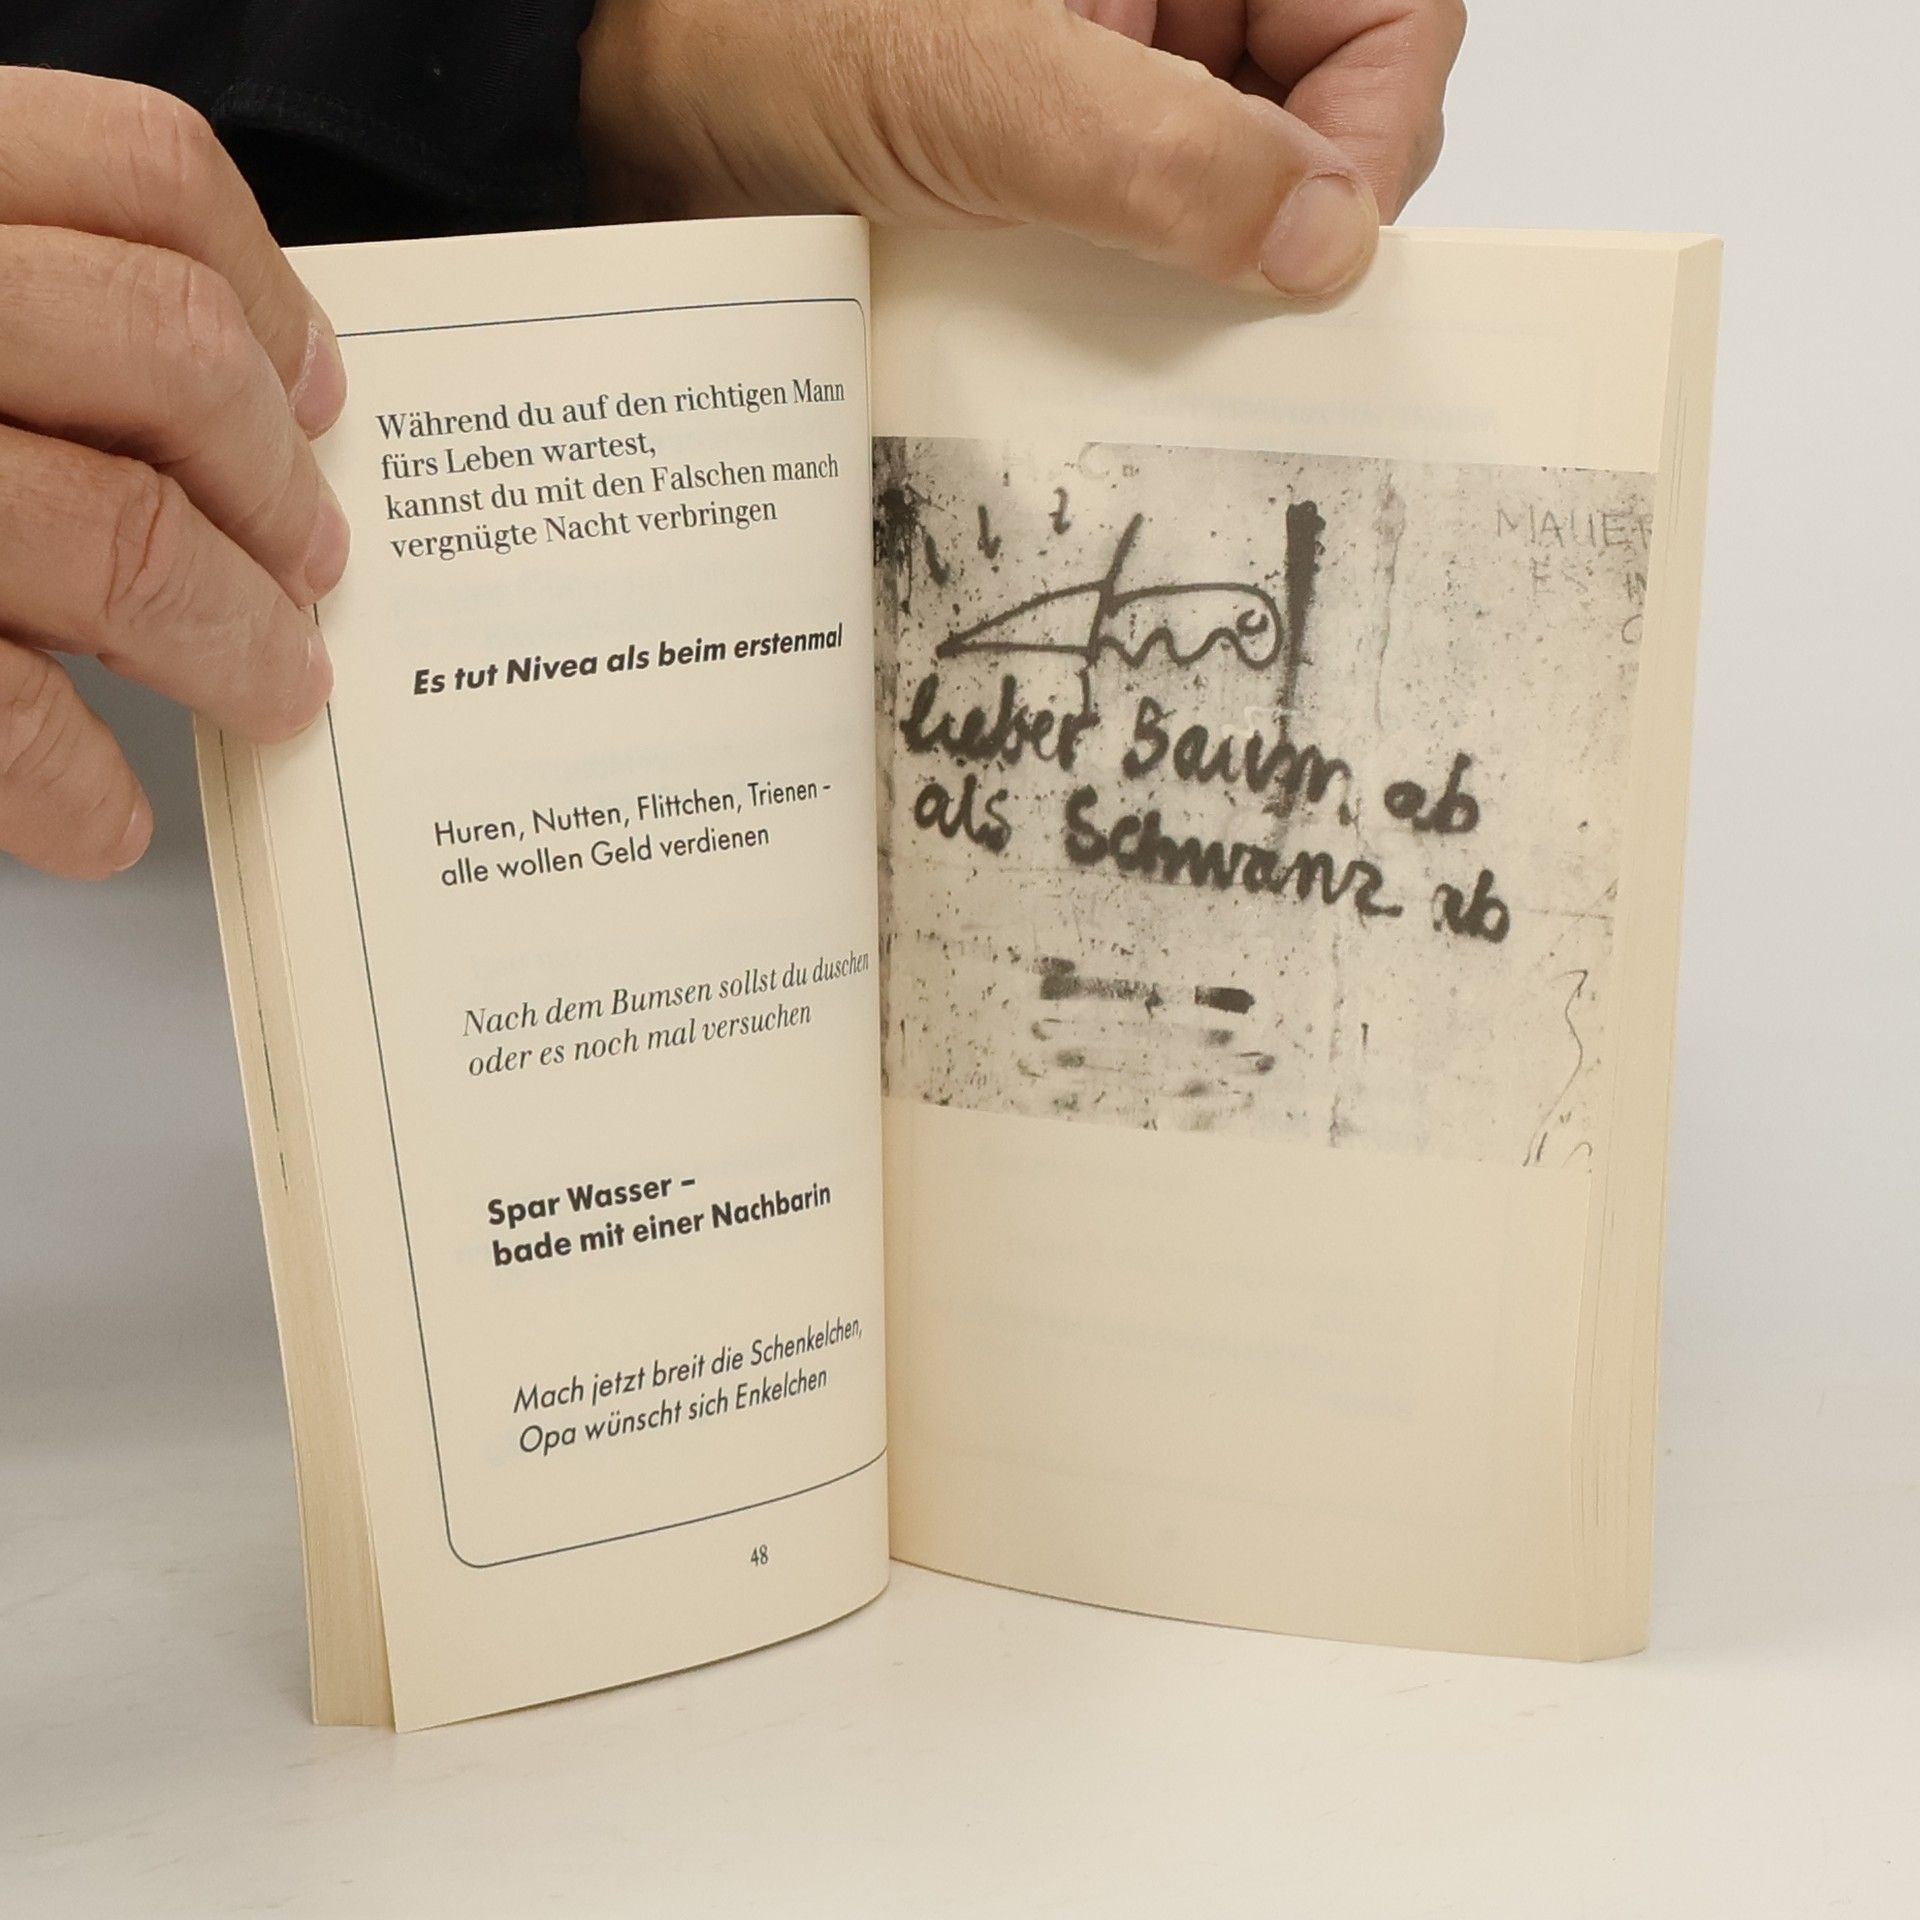 Während du auf den richtigen Mann
fürs Leben wartest,
kannst du mit den Falschen manch
vergnügte Nacht verbringen
Es tut Nivea als beim erstenmal
Huren, Nutten, Flittchen, Trienen -
alle wollen Geld verdienen
Nach dem Bumsen sollst du duschen
oder es noch mal versuchen
Spar Wasser –
bade mit einer Nachbarin
Mach jetzt breit die Schenkelchen,
Opa wünscht sich Enkelchen
48
MAUER
ES
lieber Baum ab
als Schwanz ab